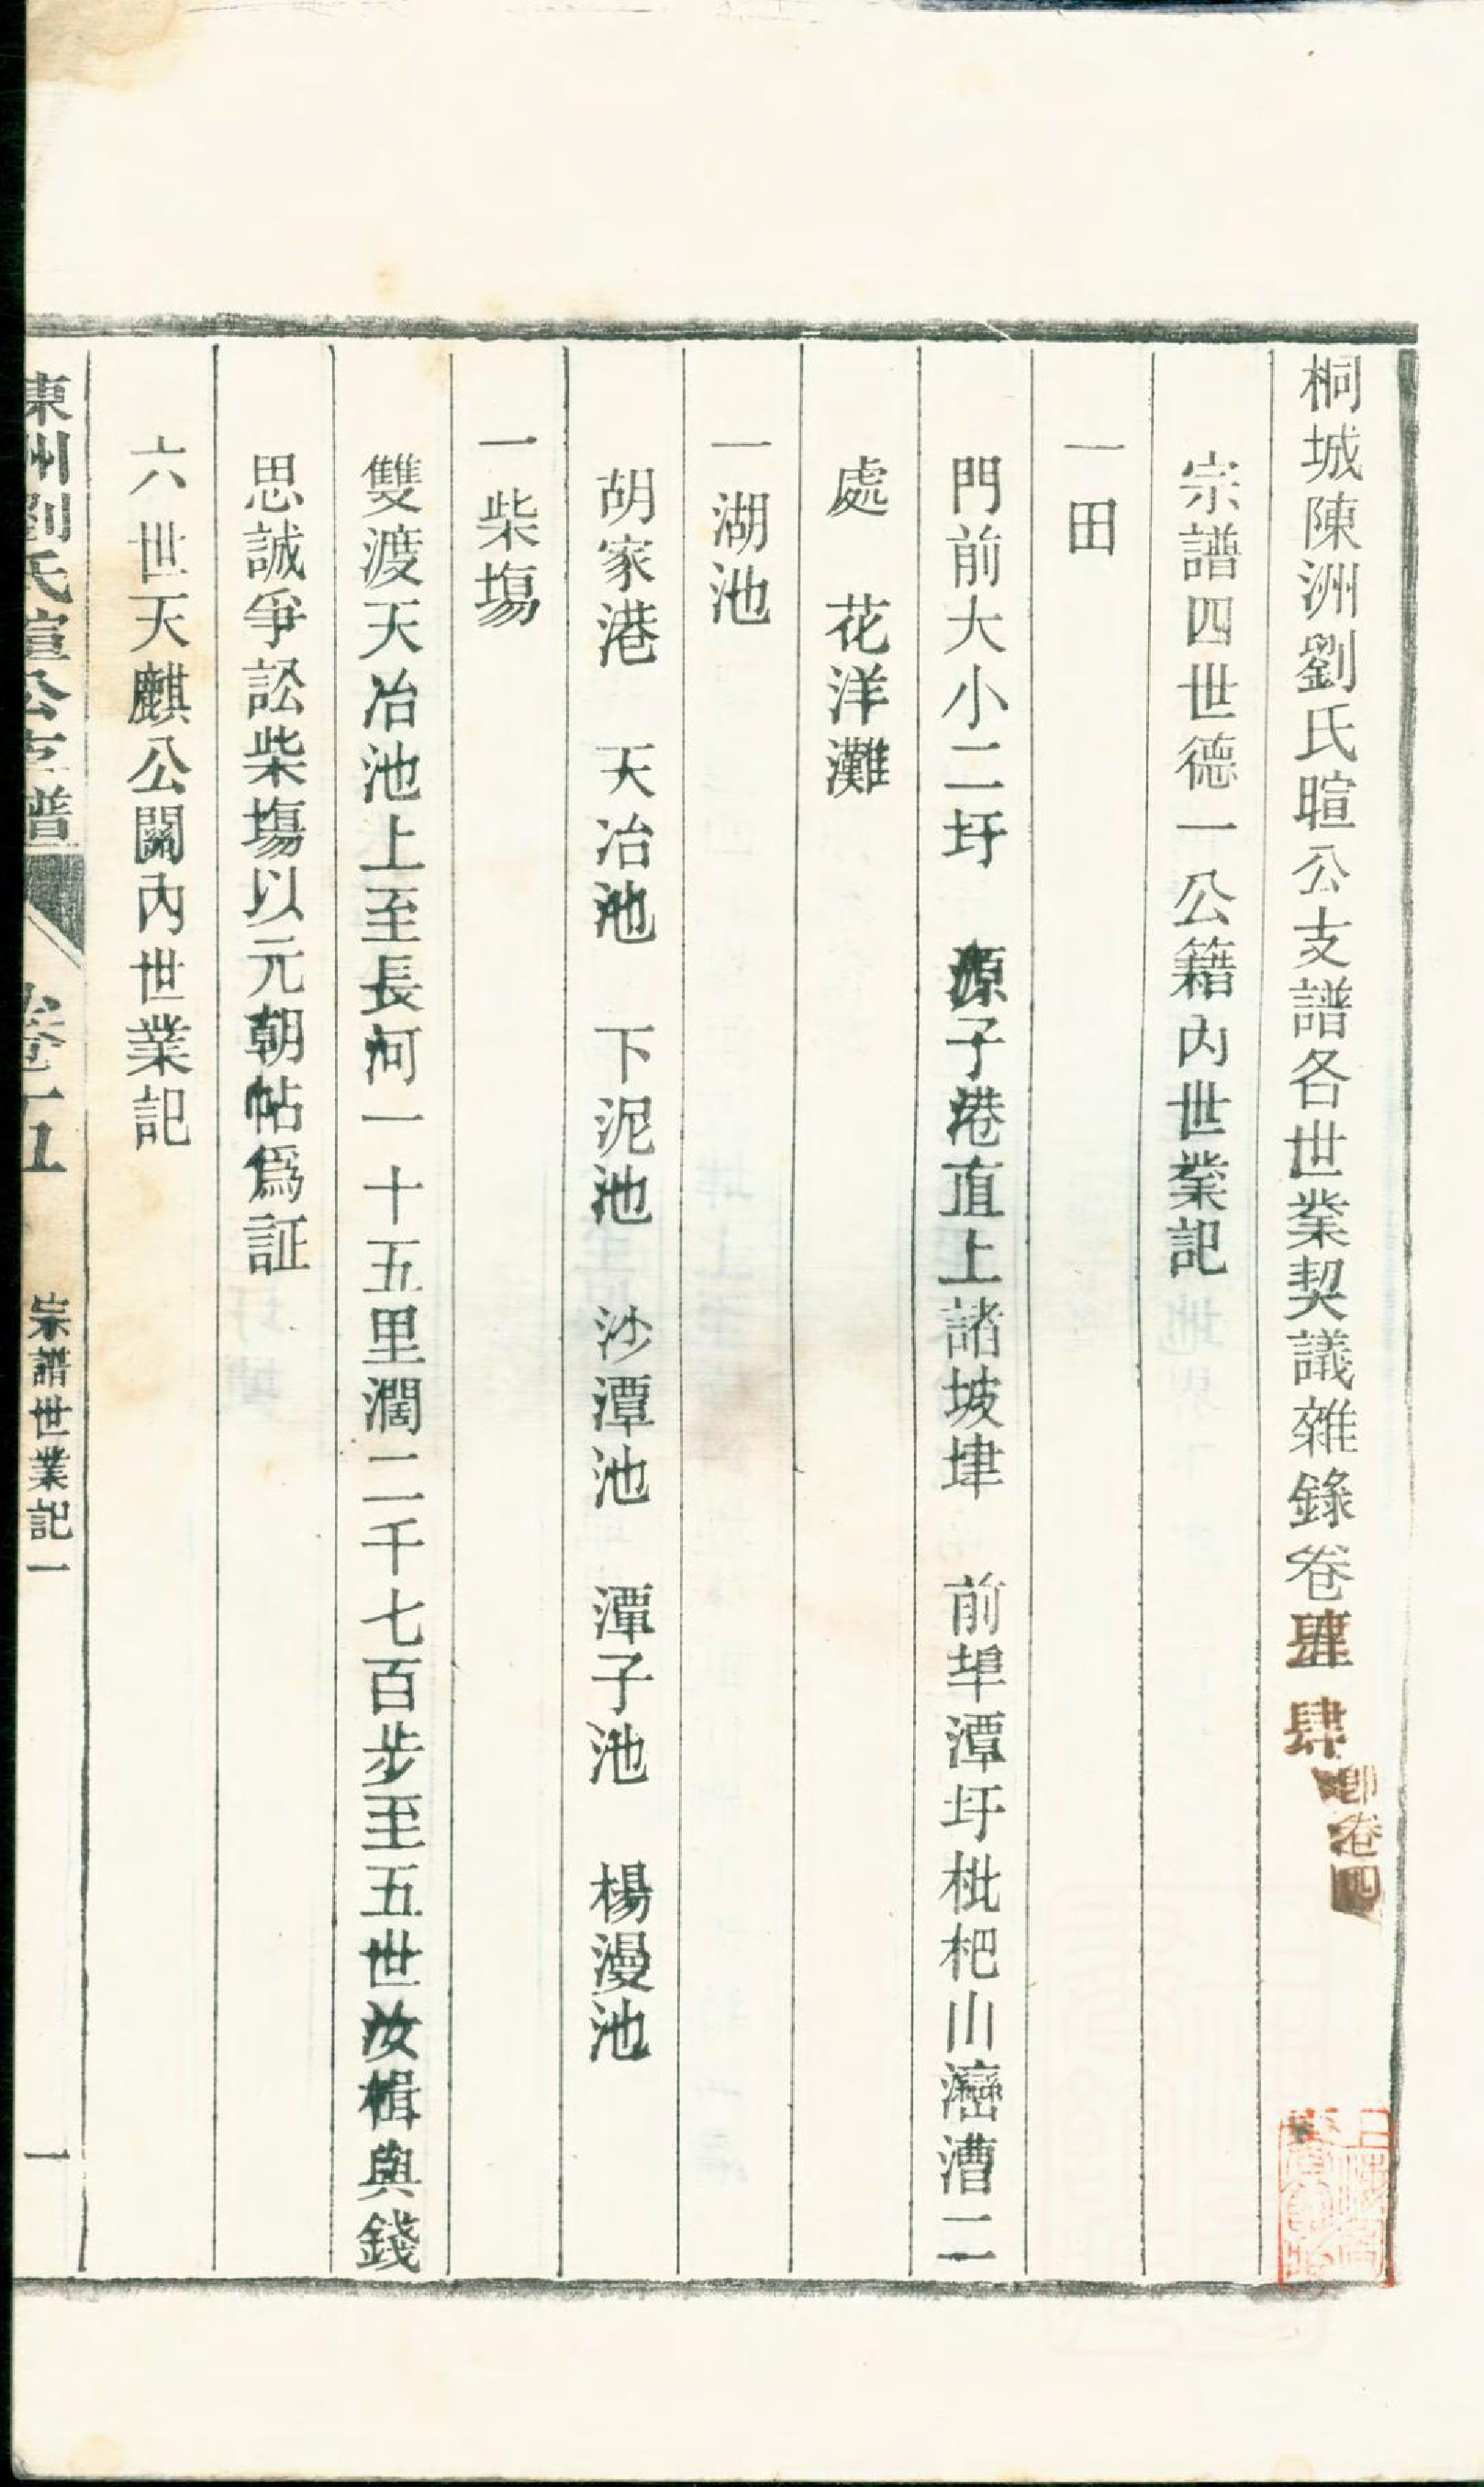 桐城陳洲劉氏暄公支譜各世業契議雜錄卷肆
肆
即卷四
宗譜四世德一公籍內世業記
一田
門前大小二圩　源子港直上諸坡埂　前埠潭圩枇杷山灣漕二
處　花洋灘
一湖池
胡家港　天冶池　下泥池　沙潭池　潭子池　楊漫池
一柴塲
雙渡天冶池上至長河一十五里濶二千七百步至五世汝楫與錢
思誠爭訟柴塲以元朝帖爲証
六世天麒公鬮內世業記
陳州劉氏暄公支譜
卷十五
宗譜世業記一
一